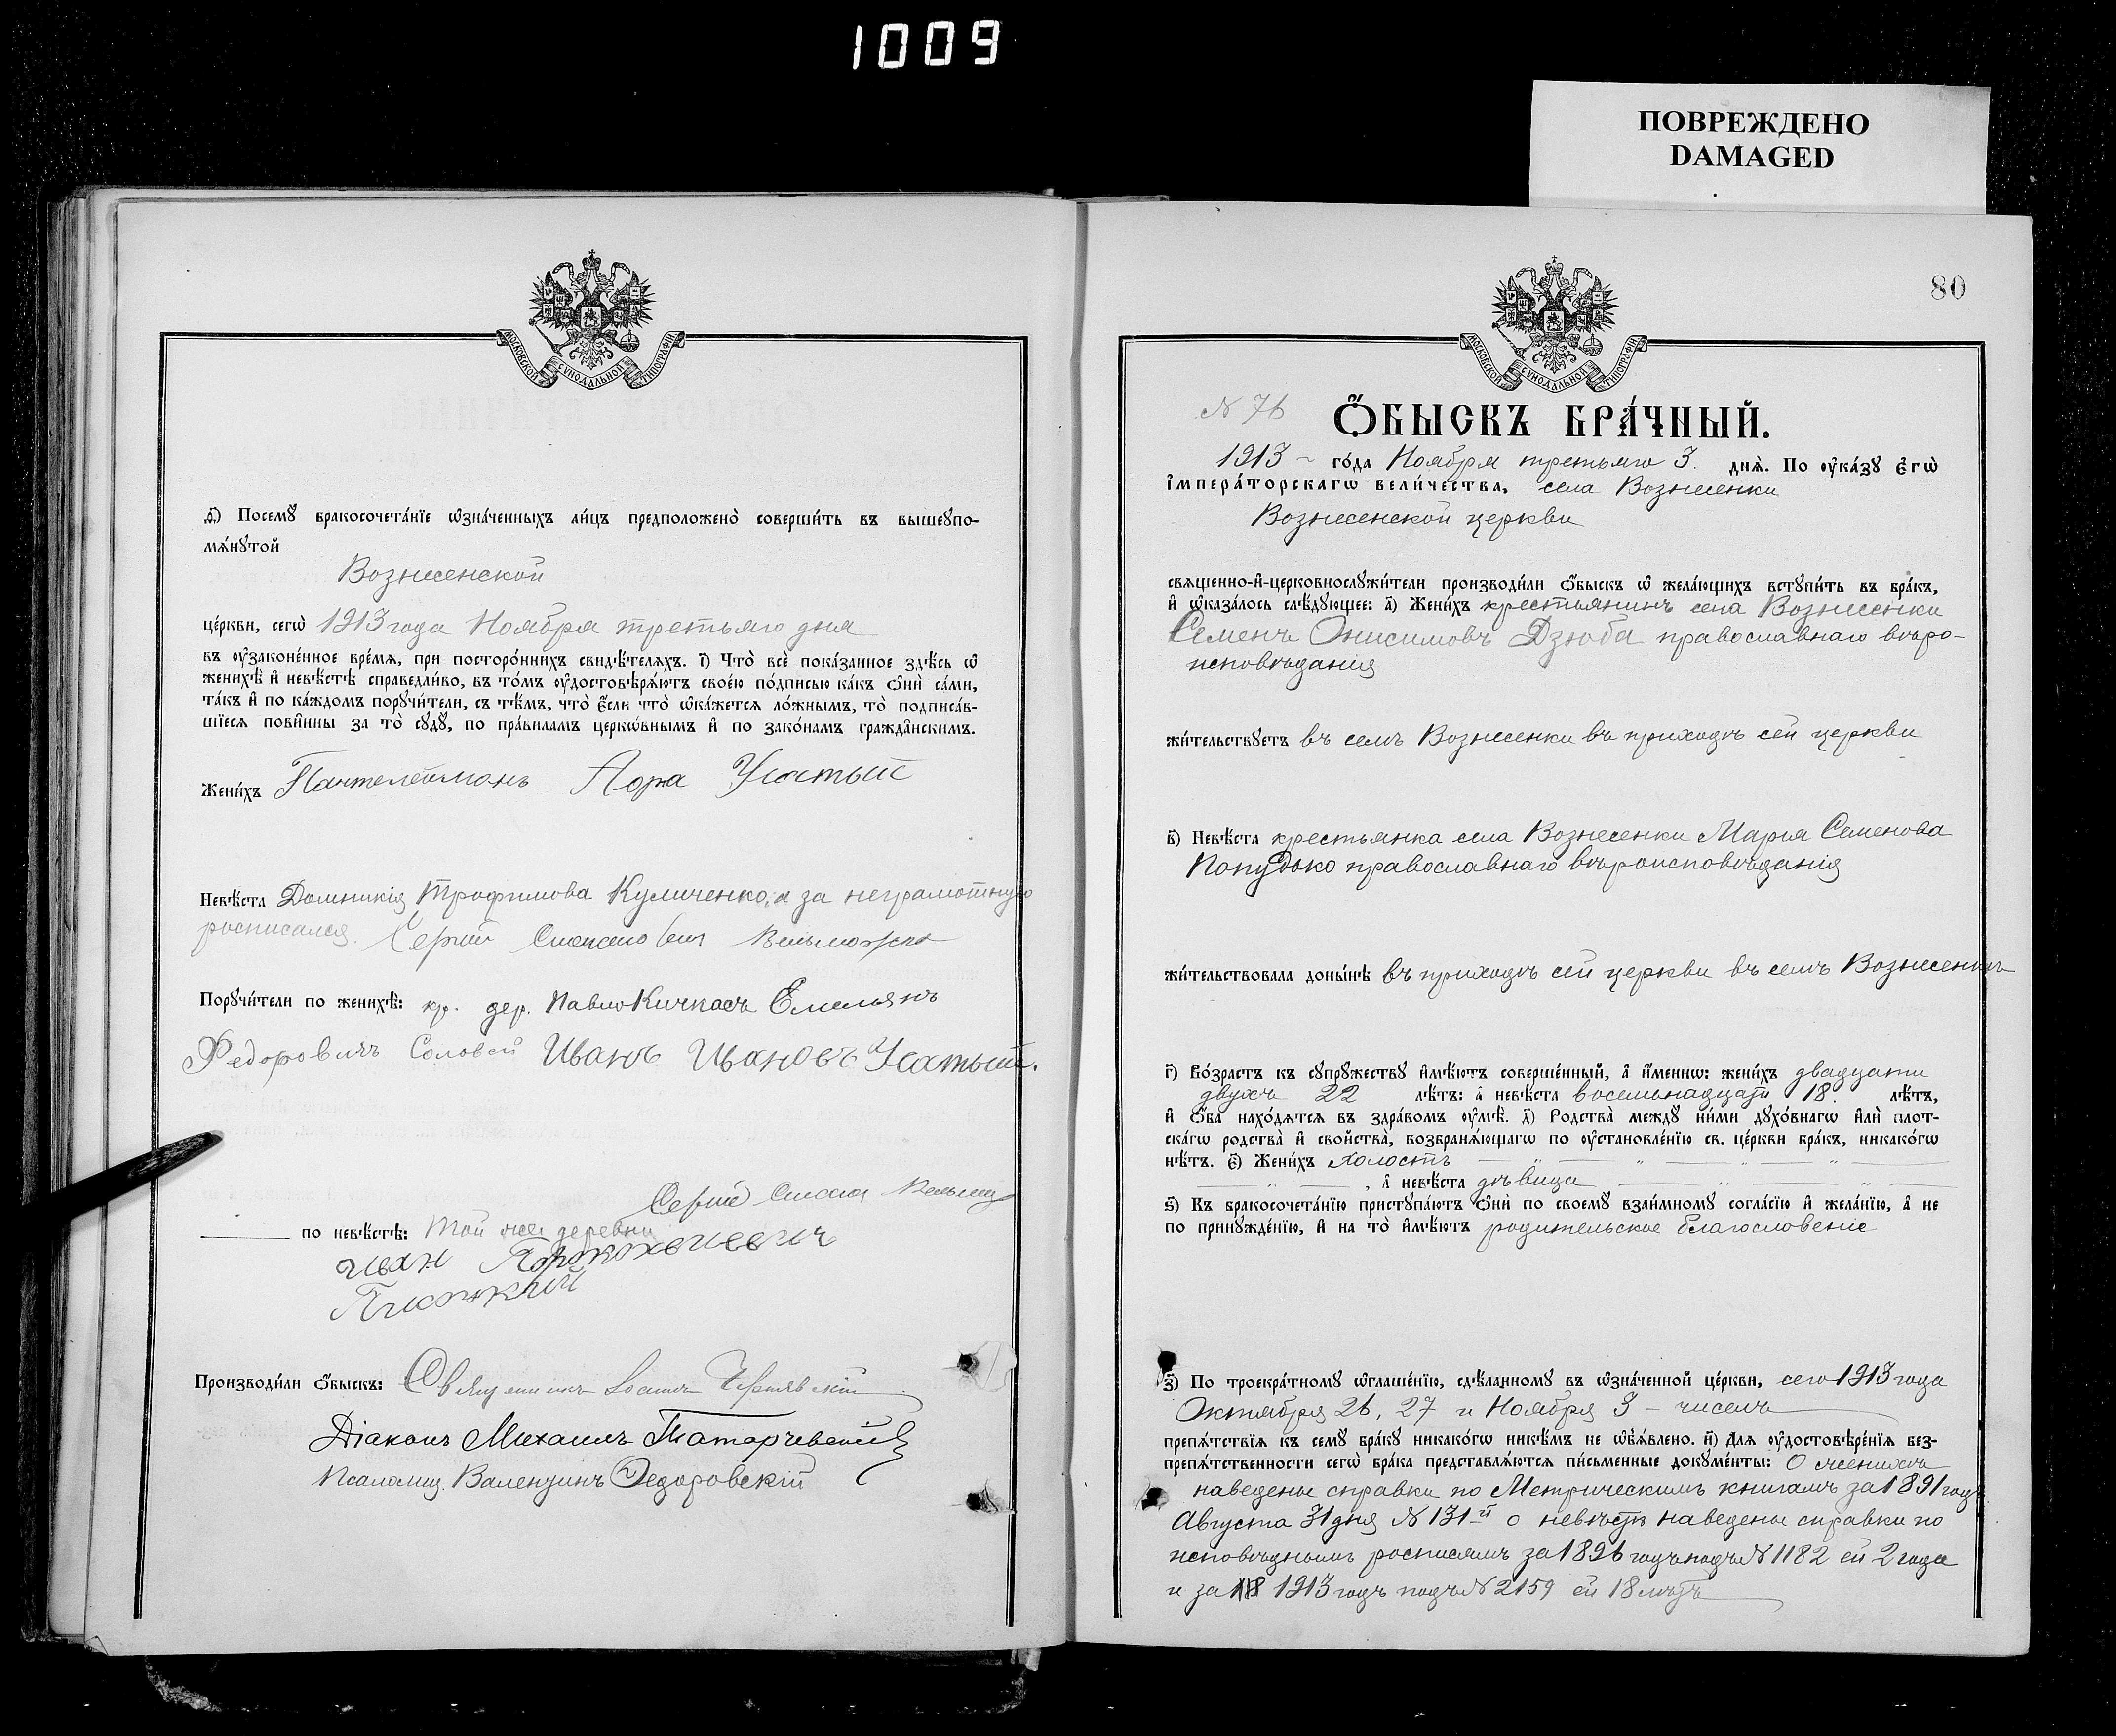 1009
ПОВРЕЖДЕНО
DAMAGED
МОСКОВСКОЙ СУНОДАЛЬНОЙ ТИПОГРАФІИ
ѳ҃) Посемꙋ бракосочета́нїе ѡзна́ченныхъ ли́цъ предположено̀ соверши́ть въ вышеꙋпо-
мѧ́нꙋтой
Вознесенской
це́ркви, сегѡ̀ 1913 года Ноября третьяго дня
въ ᲂу҆законе́нное вре́мѧ, при посторо́ннихъ свидѣ́телѧхъ. і҃) Что̀ всѐ пока́занное здѣ́сь ѡ҆
женихѣ̀ и҆ невѣ́стѣ справедли́во, въ то́мъ ᲂу҆достовѣрѧ́ютъ свое́ю по́дписью ка́къ ѻ҆нѝ са́ми,
та́къ и҆ по ка́ждомъ порꙋчи́тели, съ тѣ́мъ, что̀ є҆́сли что̀ ѡ҆ка́жетсѧ ло́жнымъ, то̀ подписа́в-
шїесѧ пови́нны за то̀ сꙋдꙋ̀, по пра́виламъ церко́внымъ и҆ по зако́намъ гражда́нскимъ.
Жени́хъ Пантелеймонъ Усатый
Невѣ́ста Домникія Трофимова Куличенко, а за неграмотную
росписался Сергій
Порꙋчи́тели по женихѣ̀: кр. дер. ПавлоКичкасъ Емельянъ
Федоровичъ Соловей Иванъ Ивановъ Усатый.
Сергій
по невѣ́стѣ: Той же деревни
Иван
Производи́ли ѻ҆́быскъ: Священникъ Іоаннъ Чернявскій
Діаконъ Михаилъ Татарчевскій
Псаломщ. Валентинъ Федоровскій
80
МОСКОВСКОЙ СУНОДАЛЬНОЙ ТИПОГРАФІИ
N 76
Ѻ҆́БЫСКЪ БРА́ЧНЫЙ.
1913 – го́да Ноября третьяго 3. днѧ̀. По ᲂу҆ка́зꙋ є҆гѡ̀
і҆мпера́торскагѡ вели́чества, села Вознесенки
Вознесенской церкви
свѧщенно-и҆-церковнослꙋжи́тели производи́ли ѻ҆́быскъ ѡ҆ жела́ющихъ встꙋпи́ть въ бра́къ,
и҆ ѡ҆каза́лось слѣ́дꙋющее: а҃) Жени́хъ крестьянинъ села Вознесенки
Семенъ Онисимовъ Дзюба православнаго вѣро-
исповѣданія
жи́тельствꙋетъ въ селѣ Вознесенки въ приходѣ сей церкви
в҃) Невѣ́ста крестьянка села Вознесенки Марія Семенова
православнаго вѣроисповѣданія
жи́тельствовала доны́нѣ въ приходѣ сей церкви въ селѣ Вознесенкѣ
г҃) Во́зрастъ къ сꙋпрꙋ́жествꙋ и҆мѣ́ютъ соверше́нный, а҆ и҆́менно: жени́хъ двадцати
двухъ 22 лѣ́тъ: а҆ невѣ́ста восемьнадцати 18. лѣ́тъ,
и҆ ѻ҆́ба нахо́дѧтсѧ въ здра́вомъ ᲂу҆мѣ̀. д҃) Родства̀ междꙋ ни́ми дꙋхо́внагѡ и҆лѝ плот-
ска́гѡ родства̀ и҆ свойства̀, возбранѧ́ющагѡ по ᲂу҆становле́нїю св. це́ркви бра́къ, никако́гѡ
нѣ́тъ. є҃) Жени́хъ холостъ
, а҆ невѣ́ста дѣвица
ѕ҃) Къ бракосочета́нїю пристꙋпа́ютъ ѻ҆нѝ по своемꙋ̀ взаи́мномꙋ согла́сїю и҆ жела́нїю, а҆ не
по принꙋжде́нїю, и҆ на то̀ и҆мѣ́ютъ родительское благословеніе
з҃) По троекра́тномꙋ ѡ҆глаше́нїю, сдѣ́ланномꙋ въ ѡ҆зна́ченной це́ркви, сего 1913 года
Октября 26, 27 и Ноября 3 – чиселъ
препѧ́тствїѧ къ семꙋ̀ бра́кꙋ никако́гѡ никѣ́мъ не ѡ҆б̾ѧ́влено. и҃) Длѧ ᲂу҆достовѣре́нїѧ без-
препѧ́тственности сегѡ̀ бра́ка представлѧ́ютсѧ пи́сьменные докꙋме́нты: О женихѣ
наведены справки по Метрическимъ книгамъ за 1891 годъ
Августа 31 дня N 131й о невѣстѣ наведены справки по
исповѣднымъ росписямъ за 1896 годъ подъ N 1182 ей 2 года
и за 1913 годъ подъ N 2159 ей 18 лѣтъ